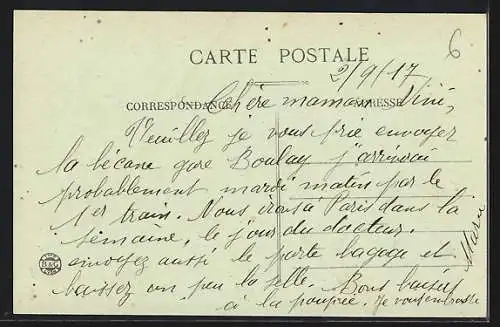 6
CARTE POSTALE
2/9/17
CORRESPONDANCE ADRESSE
Chère maman Nini,
Veuillez je vous prie envoyer
la bécane gare Boulay j'arriverai
probablement mardi matin par le
1er train. Nous irons à Paris dans la
semaine, le jour du docteur.
envoyez aussi le porte bagage et
baissez un peu la selle. Bons baisers
à la poupée. Je vous embrasse